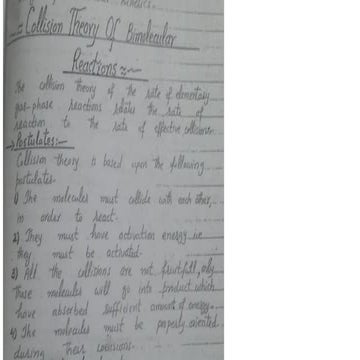 Collision Theory Of Bimolecular
Reactions:-
The collision theory of the rate of elementary
gas-phase reactions relates the rate of
reaction to the rate of effective collisions
Postulates:-
Collision theory is based upon the following
postulates-
1) The molecules must collide with each other,
in order to react.
2) They must have activation energy i.e
they must be activated-
3) All the collisions are not fruitfull, only
those molecules will go into product which
have absorbed sufficient amount of energy.
4) The molecules must be properly oriented
during their collisions-